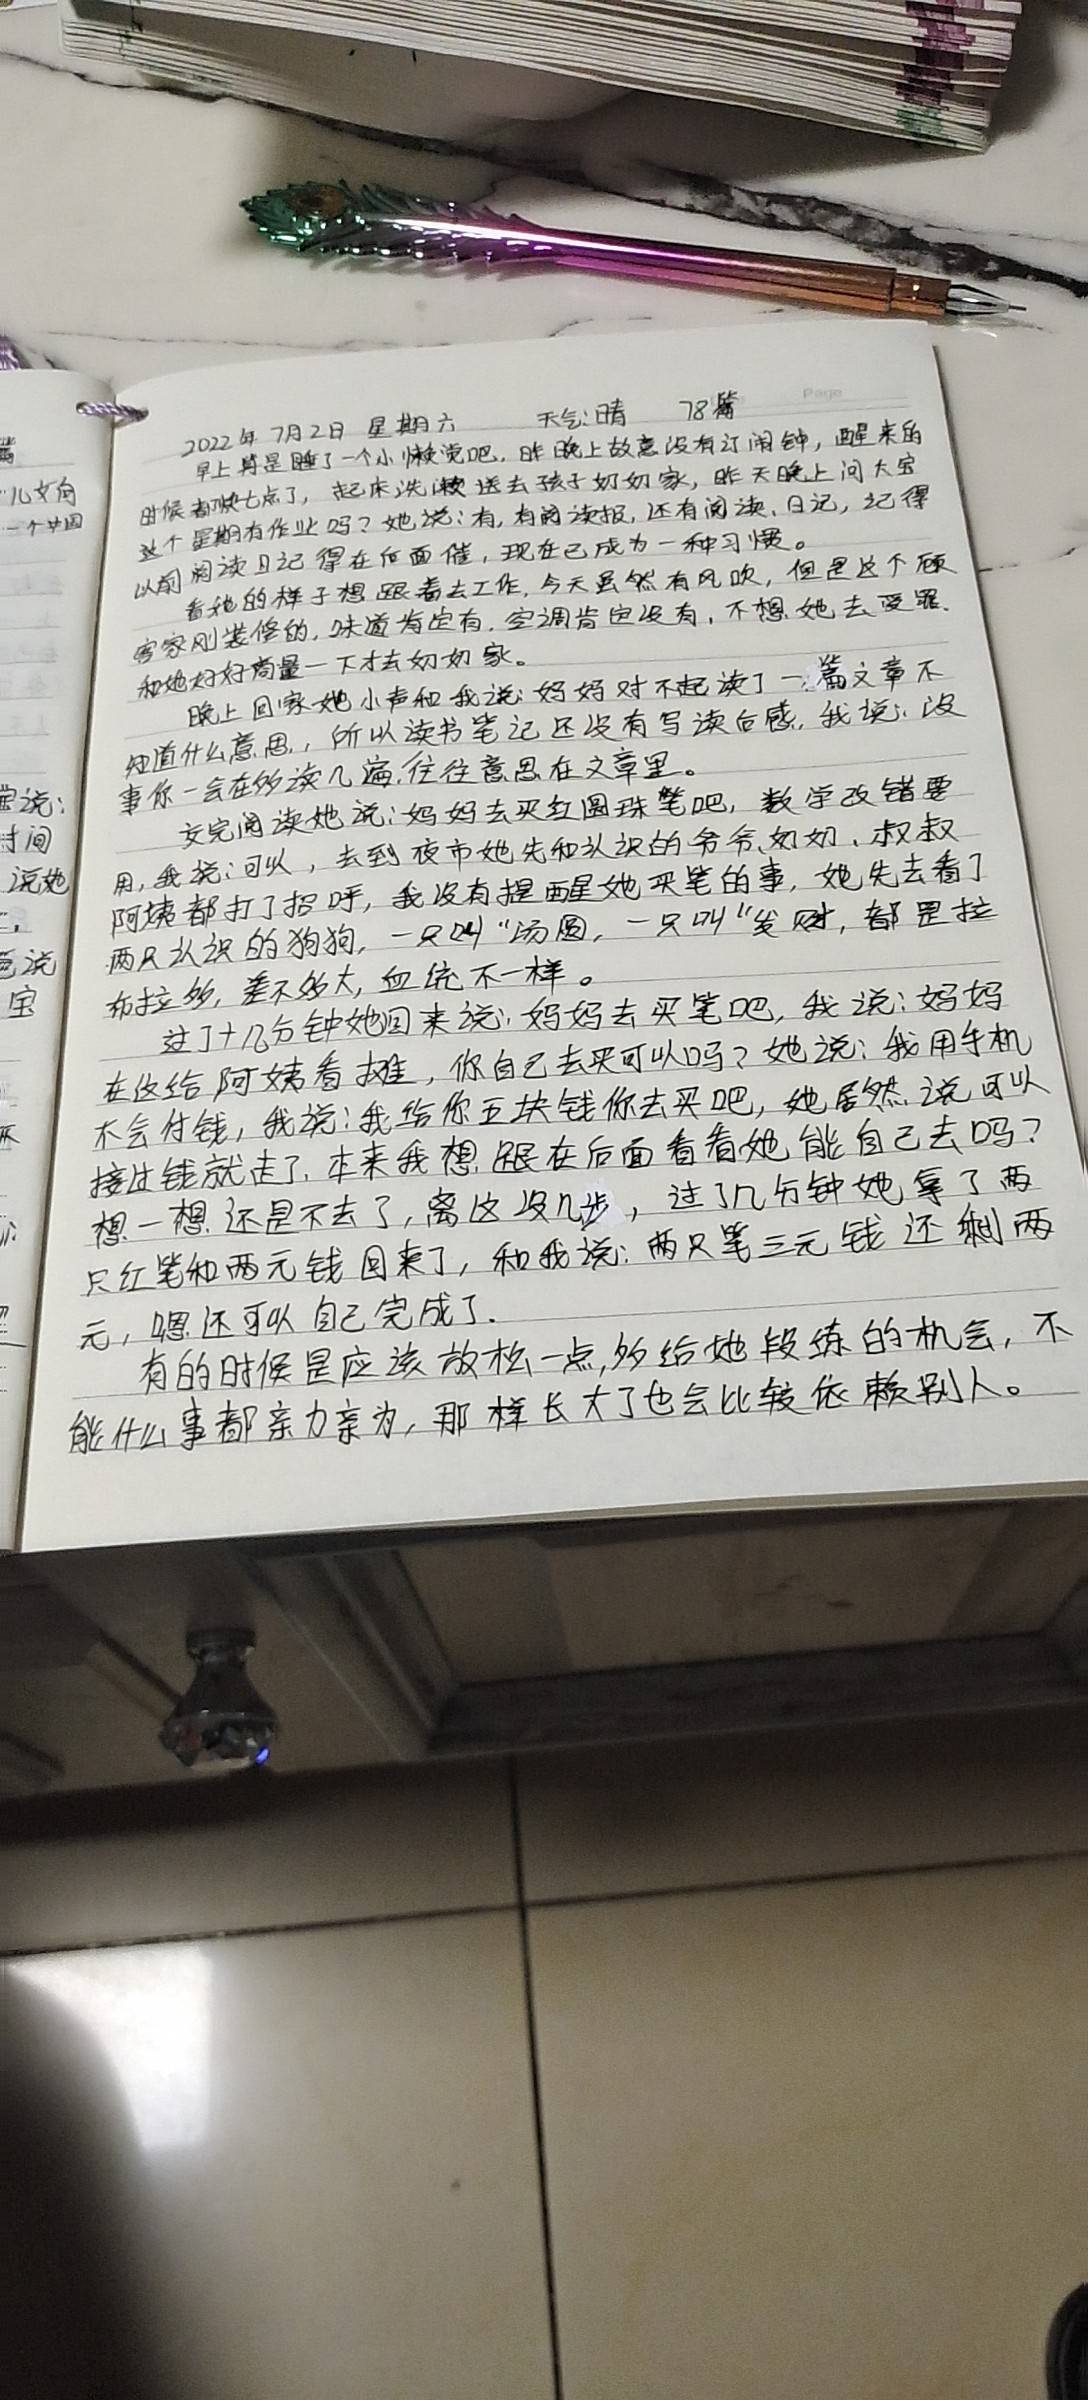 Page
2022年 7月2日 星期六 天气:晴 78篇
早上算是睡了一个小懒觉吧，昨晚上故意没有订闹钟，醒来的
时候都快七点了，起床洗漱送去孩子奶奶家，昨天晚上问大宝
这个星期有作业吗？她说：有，有阅读报，还有阅读、日记，记得
以前阅读日记得在后面催，现在已成为一种习惯。
看她的样子想跟着去工作，今天虽然有风吹，但是这个顾
客家刚装修的，味道肯定有，空调肯定没有，不想她去受罪，
和她好好商量一下才去奶奶家。
晚上回家她小声和我说：妈妈对不起读了一篇文章不
知道什么意思，所以读书笔记还没有写读后感，我说：没
事你一会在多读几遍，往往意思在文章里。
交完阅读她说：妈妈去买红圆珠笔吧，数学改错要
用，我说：可以，去到夜市她先和认识的爷爷、奶奶、叔叔
阿姨都打了招呼，我没有提醒她买笔的事，她先去看了
两只认识的狗狗，一只叫“汤圆，一只叫“发财，都是拉
布拉多，差不多大，血统不一样。
过了十几分钟她回来说：妈妈去买笔吧，我说：妈妈
在这给阿姨看摊，你自己去买可以吗？她说：我用手机
不会付钱，我说：我给你五块钱你去买吧，她居然说可以
接过钱就走了，本来我想跟在后面看看她能自己去吗？
想一想还是不去了，离这没几步，过了几分钟她拿了两
只红笔和两元钱回来了，和我说：两只笔三元钱还剩两
元，嗯还可以自己完成了．
有的时候是应该放松一点，多给她段练的机会，不
能什么事都亲力亲为，那样长大了也会比较依赖别人。
儿文向
一个中国
说：
时间
说她
说
宝